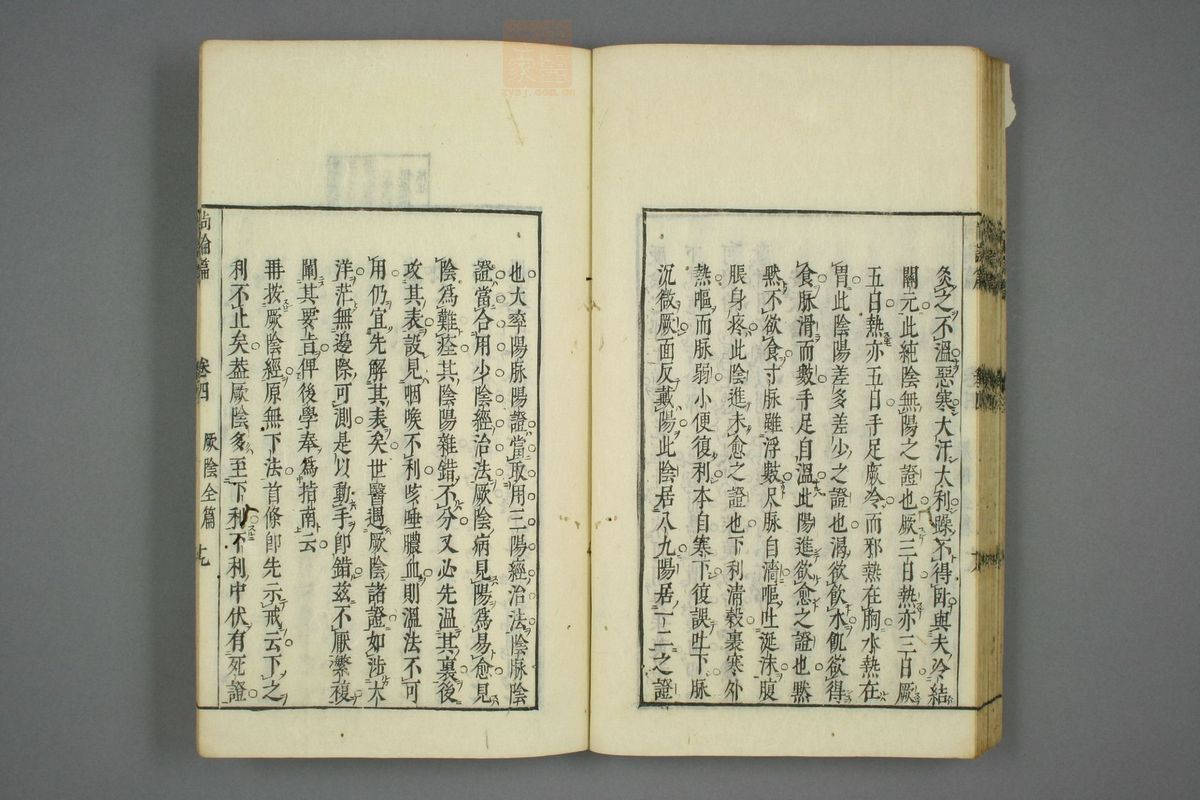 灸之不溫惡寒大汗大利躁不得臥與夫冷結
關元此純陰無陽之證也厥三日熱亦三日厥
五日熱亦五日手足厥冷而邪熱在胸水熱在
胃此陰陽差多差少之證也渴欲飲水飢欲得
食脉滑而數手足自溫此陽進欲愈之證也默
默不欲食寸脉雖浮數尺脉自濇嘔吐涎沫腹
脹身疼此陰進未愈之證也下利清穀裏寒外
熱嘔而脉弱小便復利本自寒下復誤吐下脉
沉微厥面反戴陽此陰居八九陽居一二之證
也大率陽脉陽證當取用三陽經治法陰脉陰
證當合用少陰經治法厥陰病見陽爲易愈見
陰爲難痊其陰陽雜錯不分又必先溫其裏後
攻其表設見咽喉不利咳唾膿血則溫法不可
用仍宜先解其表矣世醫遇厥陰諸證如涉大
洋茫無邊際可測是以動手卽錯茲不厭繁複
闡其要旨俾後學奉爲指南云
再按厥陰經原無下法首條卽先示戒云下之
利不止矣葢厥陰多至下利不利中伏有死證
尚論篇 卷四 厥陰全篇 十九
zysj.com.cn